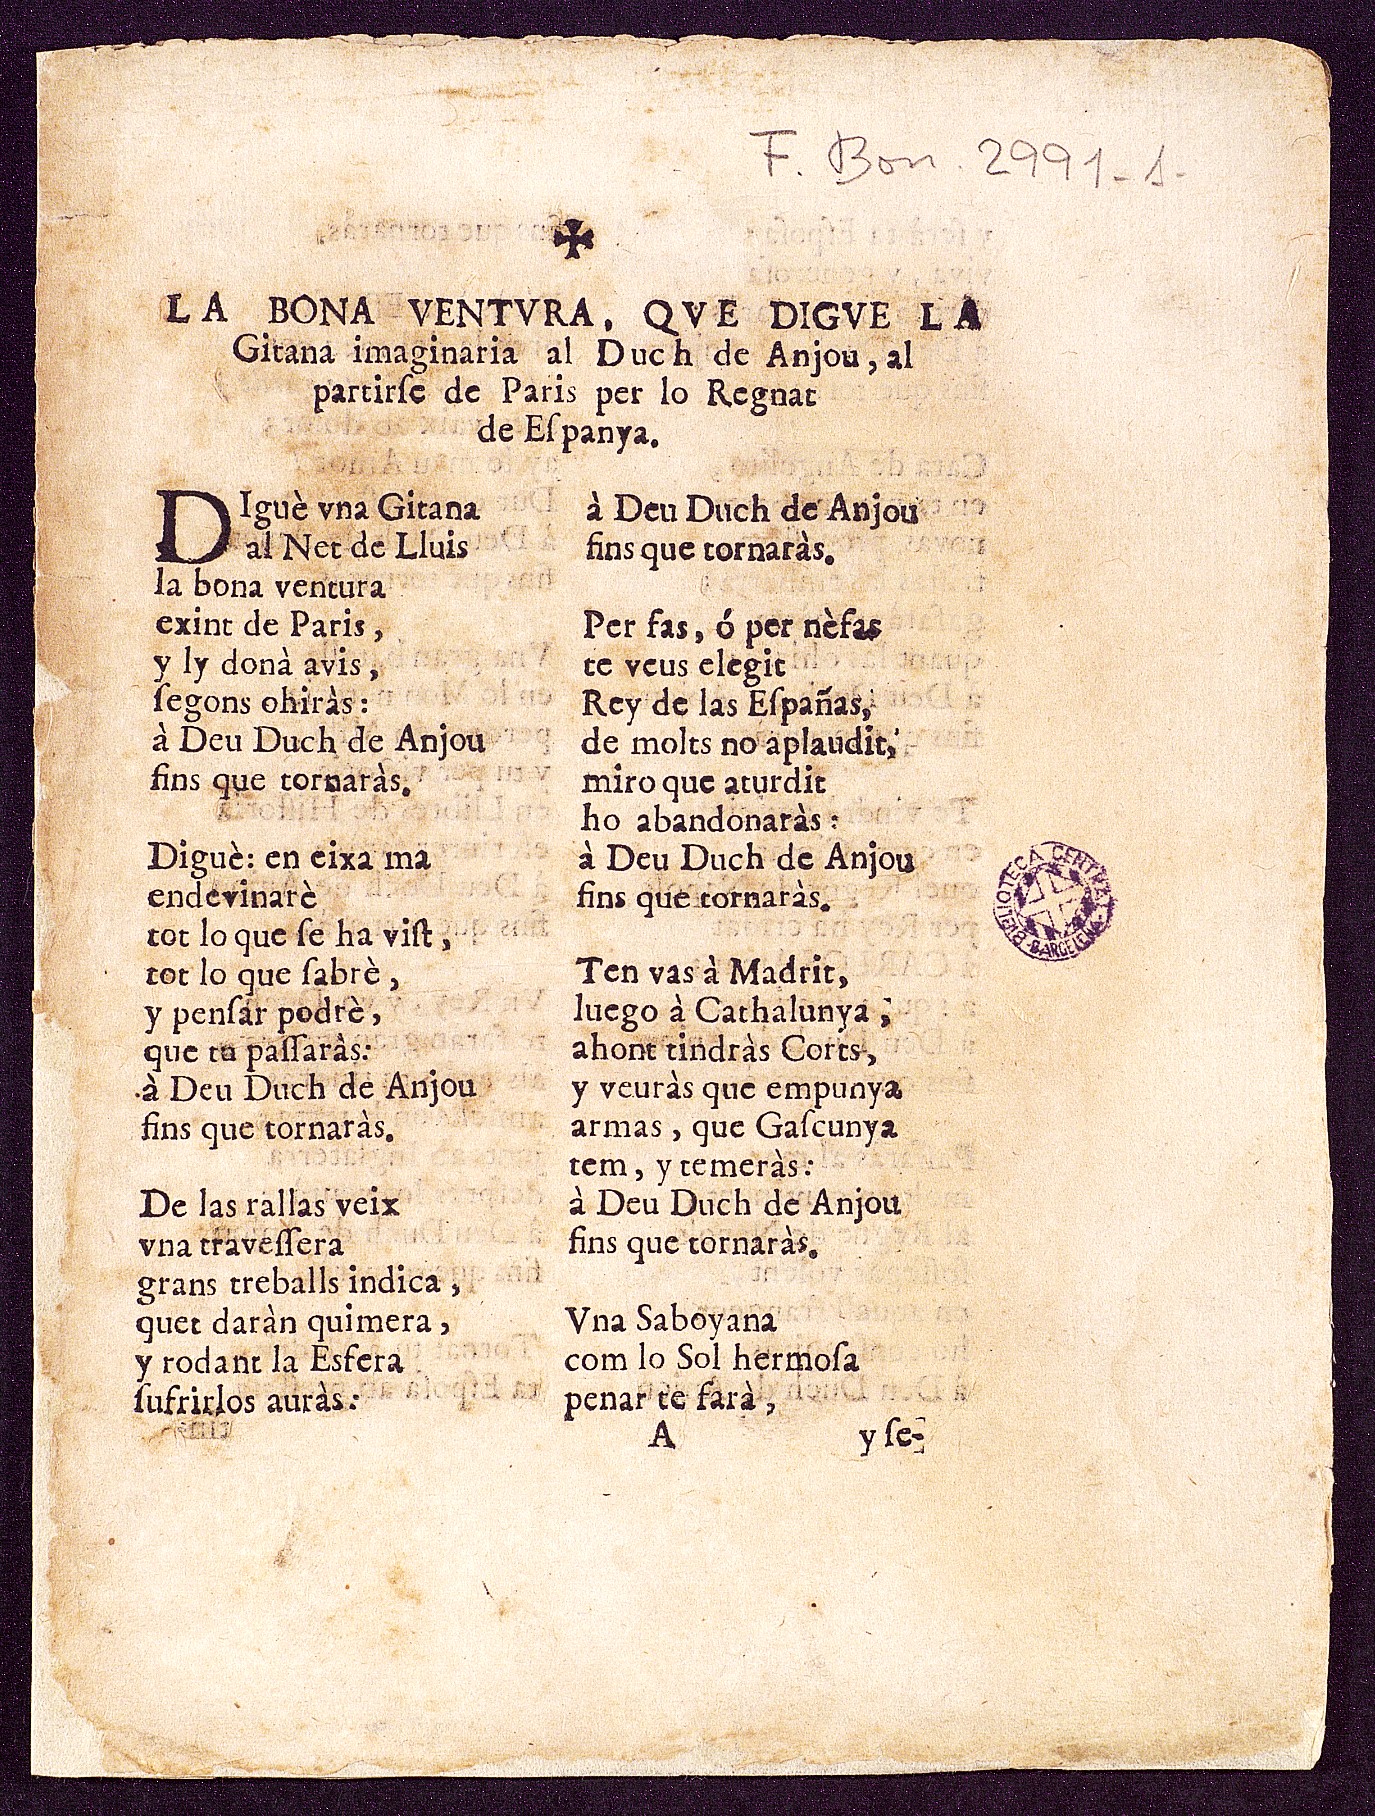 F. Bon. 2991-1-
✠
LA BONA VENTVRA, QVE DIGVE LA
Gitana imaginaria al Duch de Anjou, al
partirſe de Paris per lo Regnat
de Eſpanya.
DIguè vna Gitana
al Net de Lluis
la bona ventura
exint de Paris,
y ly donà avis,
ſegons ohiràs:
à Deu Duch de Anjou
fins que tornaràs.
Diguè: en eixa ma
endevinarè
tot lo que ſe ha viſt,
tot lo que ſabrè,
y penſar podrè,
que tu paſſaràs:
à Deu Duch de Anjou
fins que tornaràs.
De las rallas veix
vna traveſſera
grans treballs indica,
quet daràn quimera,
y rodant la Esfera
ſufrirlos auràs:
à Deu Duch de Anjou
fins que tornaràs.
Per fas, ó per nèfas
te veus elegit
Rey de las Eſpañas,
de molts no aplaudit,
miro que aturdit
ho abandonaràs:
à Deu Duch de Anjou
fins que tornaràs.
Ten vas à Madrit,
luego à Cathalunya;
ahont tindràs Corts,
y veuràs que empunya
armas, que Gaſcunya
tem, y temeràs:
à Deu Duch de Anjou
fins que tornaràs.
Vna Saboyana
com lo Sol hermoſa
penar te farà,
A y ſe-
BIBLIOTECA CENTRAL
BARCELONA